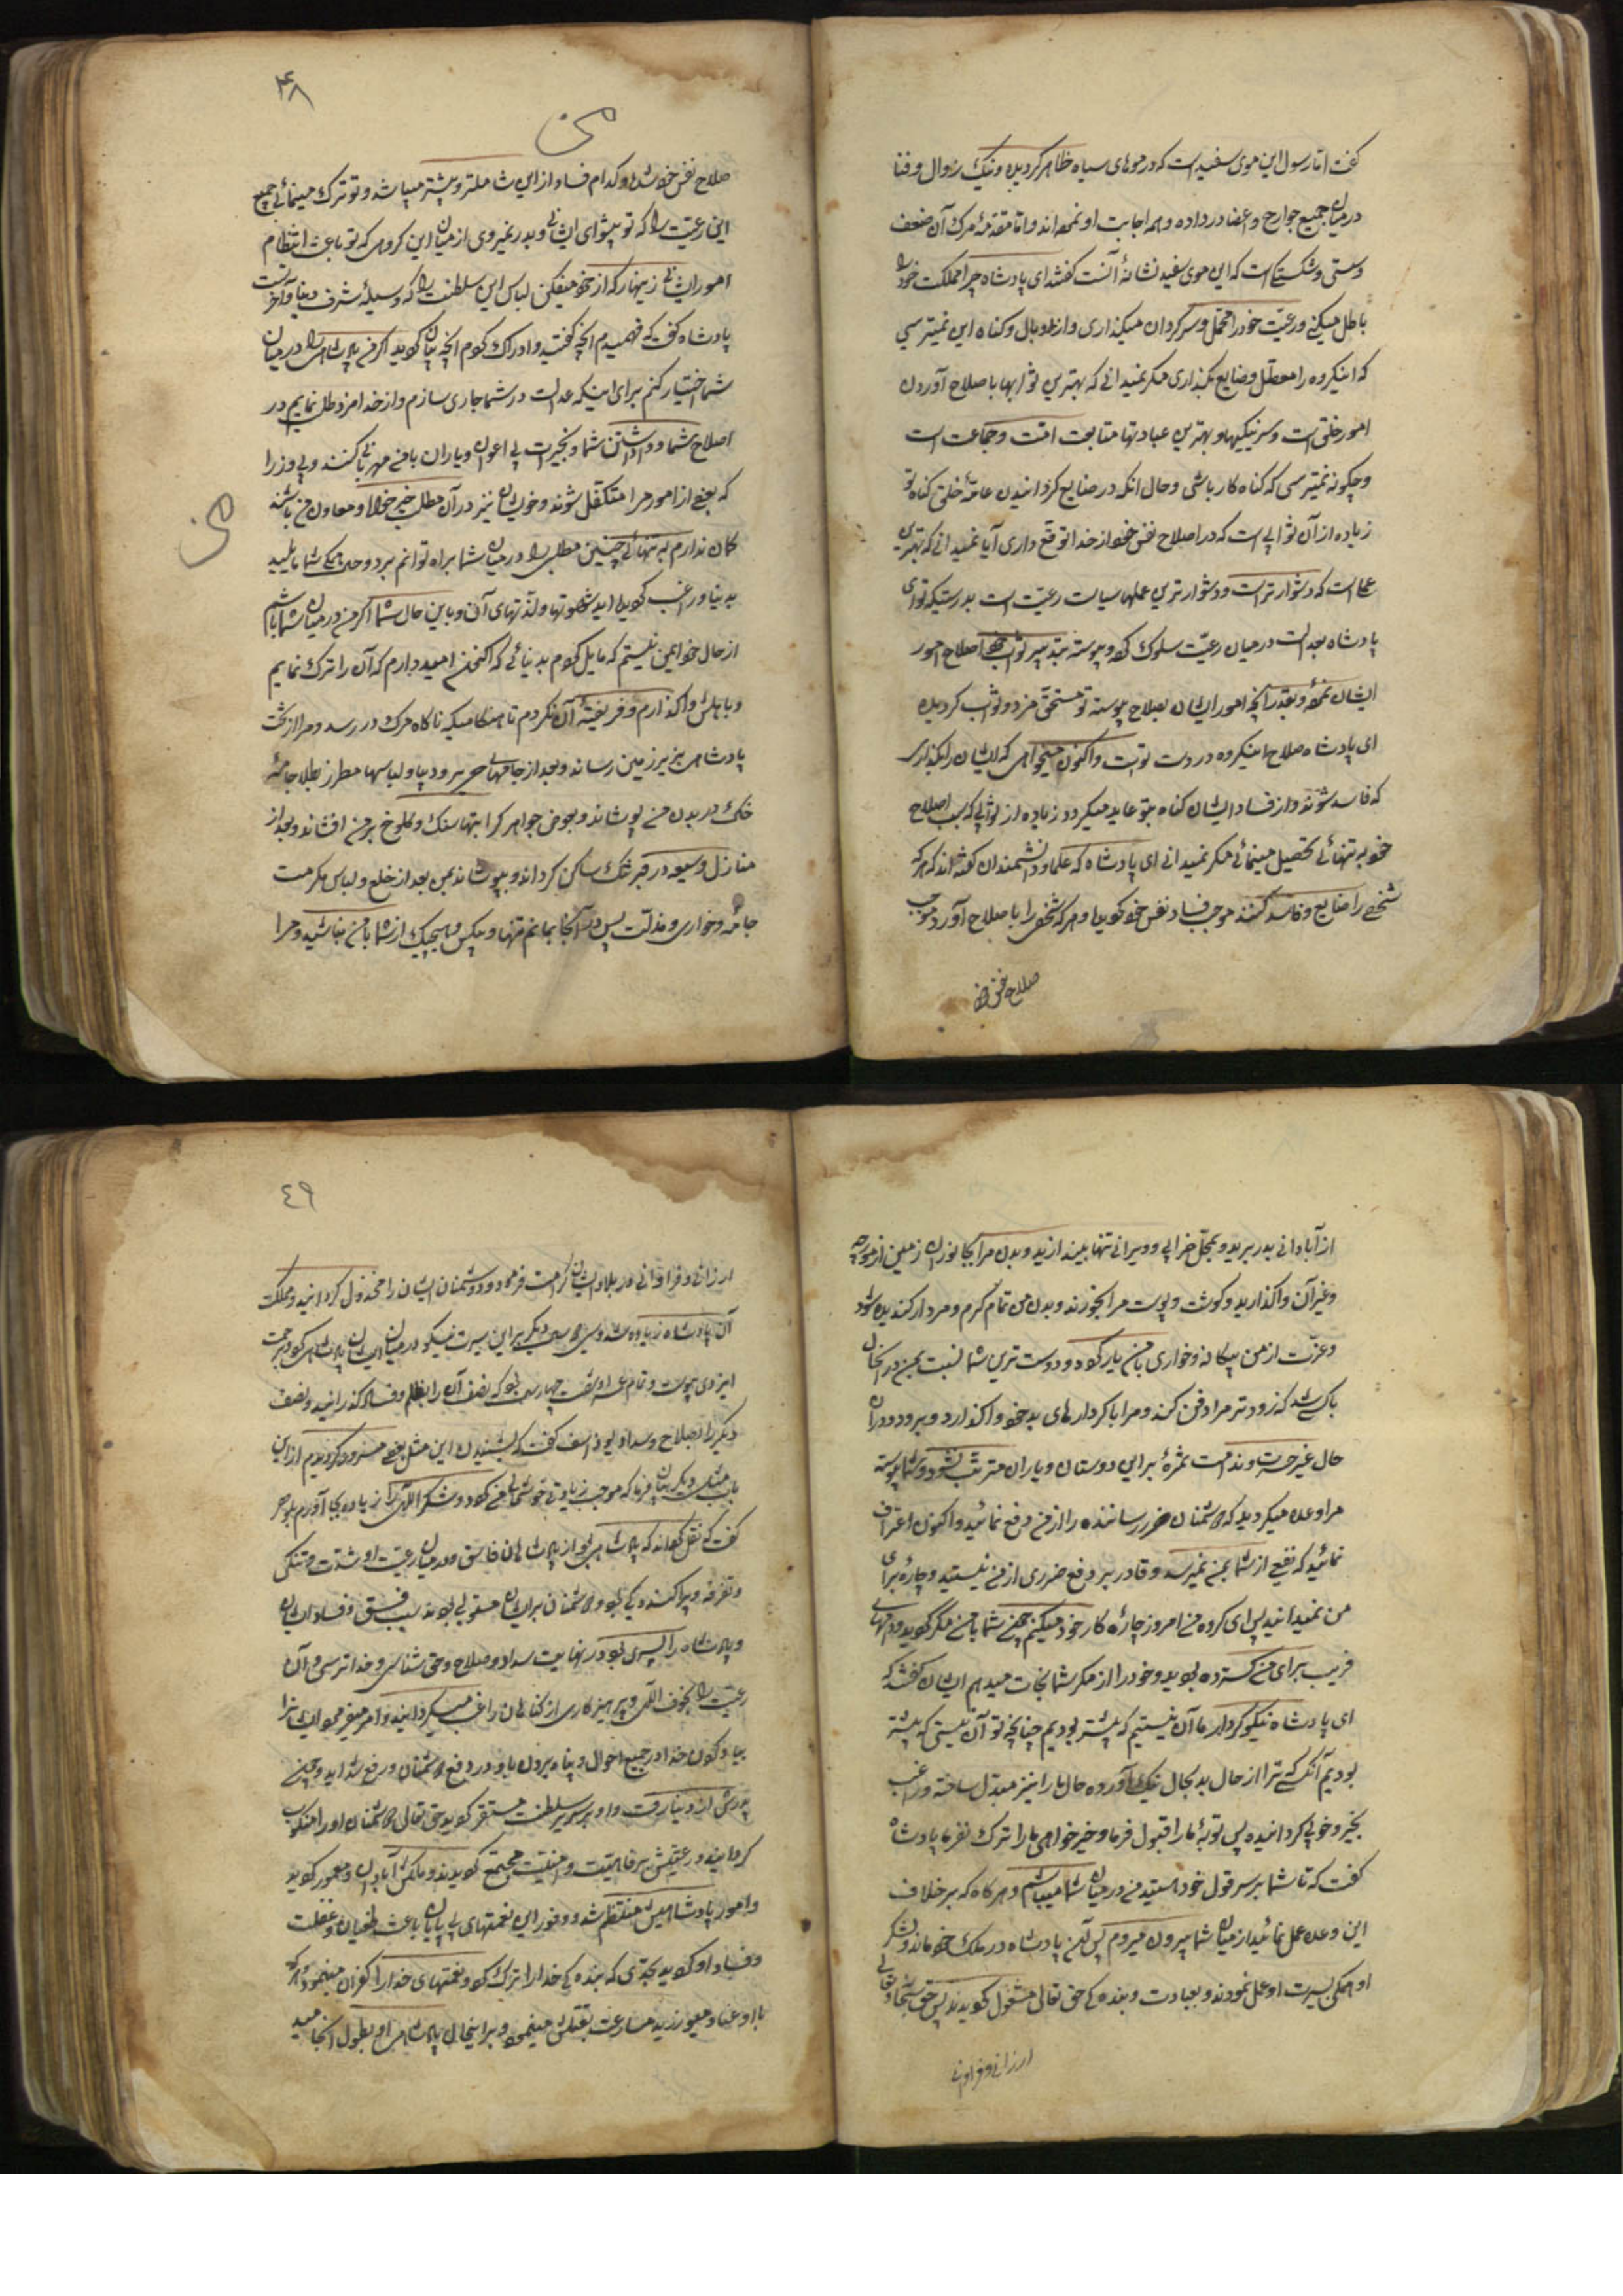 گفت اما رسول این موی سفید است که در موهای سیاه ظاهر گردیده و بانگ زوال و فنا
در میان جمیع جوارح و اعضا در داده و همه اجابت او نموده‌اند و اما مقدمهٔ مرگ آن ضعف
و سستی و شکستگی است که این موی سفید نشانهٔ آنست گفتند ای پادشاه چرا مملکت خود را
باطل میکنی و رعیّت خود را مهمل و سرگردان میگذاری و از وبال و گناه این نمیترسی
که اینگروه را معطّل و ضایع بگذاری مگر نمیدانی که بهترین ثوابها باصلاح آوردن
امور خلق است و سر نیکیها و بهترین عبادتها متابعت امّت و جماعت است
و چگونه نمیترسی که گناه‌کار باشی و حال آنکه در ضایع گردانیدن عامّهٔ خلق گناه تو
زیاده از آن ثوابی است که در اصلاح نفس خود از خدا توقّع داری آیا نمیدانی که بهترین
عملها است که دشوارتر است و دشوارترین عملها سیاست رعیّت است بدرستیکه تو ای
پادشاه بعدالت در میان رعیّت سلوک کرده و پیوسته بتدبیر خود اصلاح امور
ایشان نموده و بقدر آنچه امور ایشان بصلاح پیوسته تو مستحقّ مزد و ثواب گردیده
ای پادشاه صلاح اینگروه در دست تو است و اکنون میخواهی که ایشان را بگذاری
که فاسد شوند و از فساد ایشان گناه بتو عاید میگردد زیاده از ثوابی که بسبب اصلاح
خود به تنهائی تحصیل مینمائی مگر نمیدانی ای پادشاه که علما و دانشمندان گفته‌اند که هر که
شخصی را ضایع و فاسد کند موجب فساد نفس خود گردید و هر که شخصی را باصلاح آورد موجب
صلاح نفس خود
۴۸
صلاح نفس خود شد و کدام فساد از این شاملتر و بیشتر میباشد و تو ترک مینمائی جمیع
این رعیّت را که تو پیشوای ایشانی و بدر میروی از میان این گروهی که تو باعث انتظام
امور ایشانی زینهار که از خود میفکن لباس این سلطنت را که وسیلهٔ شرف دنیا و آخرتست
پادشاه گفت که فهمیدم آنچه گفتید و ادراک کردم آنچه بیان کردید اگر من پادشاهی را در میان
شما اختیار کنم برای اینکه عدالت در شما جاری سازم و از خدا مزد طلب نمایم در
اصلاح شما و واداشتن شما و بخیرات بی اعوان و یاران با من مهربانی کنند و بی وزرا
که بعضی از امور مرا متکفّل شوند و خویشان نیز در آن مطلب خیرخواه و معاون من باشند
گمان ندارم که بتنهائی چنین مطلبی را در میان شما براه توانم برد و حال آنکه همگی شما مایلید
بدنیا و راغب گردیده‌اید بشهوتها و لذّتهای آن و باین حال شما اگر من در میان شما باشم
از حال خود ایمن نیستم که مایل گردم بدنیائی که اکنون امید دارم که آن را ترک نمایم
و باهلش واگذارم و فریفتهٔ آن نگردم تا هنگامیکه ناگاه مرگ در رسد و مرا از تخت
پادشاهی بزیر زمین رساند و بعد از جامهای حریر و دیبا و لباسها مطرّز بطلا جامهٔ
خاک در بدن من پوشاند و بعوض جواهر گرانبها سنگ و کلوخ بر من افشاند و بعد از
منازل وسیعه در قبر تنگ ساکن گرداند و بپوشاند بمن بعد از خلع و لباس مکرمت
جامهٔ خواری و مذلّت پس در آنجا بمانم تنها و بیکس و هیچیک از شما با من نباشید و مرا
از آبادانی بدر برید و بمحلّ خرابی و ویرانی تنها بیندازید و بدن مرا بجانوران زمین از مورچه
و غیر آن واگذارید و گوشت و پوست مرا بخورند و بدن من تمام کرم و مردار گندیده شود
و عزّت از من بیگانه و خواری با من یار گردد و دوست‌ترین شما نسبت بمن در آنحال
کسی باشد که زودتر مرا دفن کند و مرا با کردارهای بد خود واگذارد و برود و در آن
حال غیر حسرت و ندامت ثمرهٔ برای دوستان و یاران مترتّب نشود و شما پیوسته
مرا وعده میکردید که دشمنان ضرر رساننده را از من دفع نمائید و اکنون اعتراف
نمائید که نفعی از شما بمن نمیرسد و قادر بر دفع ضرری از من نیستید و چارهٔ برای
من نمیدانید پس ای گروه من امروز چارهٔ کار خود میکنم چون شما با من مکر کردید و دامهای
فریب برای من گسترده بودید و خود را از مکر شما نجات میدهم ایشان گفتند که
ای پادشاه نیکوکردار ما آن نیستیم که پیشتر بودیم چنانچه تو آن نیستی که پیشتر
بودی آنکسی که ترا از حال بد بحال نیک آورده حال ما را نیز مبدّل ساخته و راغب
بخیر و خوبی گردانیده پس توبهٔ ما را قبول فرما و خیرخواهی ما را ترک نفرما پادشاه
گفت که تا شما بر سر قول خود هستید من در میان شما میباشم و هرگاه که بر خلاف
این وعده عمل نمائید از میان شما بیرون میروم پس آن پادشاه در ملک خود ماند و لشکر
او همگی بسیرت او عمل نمودند و بعبادت و بندگی حق تعالی مشغول گردیدند پس حق سبحانه و تعالی
ارزانی و فراوانی
٤٩
ارزانی و فراوانی در بلاد ایشان کرامت فرمود و دشمنان ایشان را مخذول گردانید و مملکت
آن پادشاه زیاده شد و سی و دو سال دیگر بر این سیرت نیکو در میان ایشان پادشاهی کرد و برحمت
ایزدی پیوست و تمام عمر او شصت و چهار سال بود که نصف آن را بظلم و فساد گذرانید و نصف
دیگر را بصلاح و سداد یوذاسف گفت که بشنیدن این مثل بسی مسرور گردیدم از این
باب مثلی دیگر بیان فرما که موجب زیادتی خوشحالی من گردد و شکر الهی را زیاده بجا آورم بلوهر
گفت که نقل کرده‌اند که پادشاهی بود از پادشاهان فاسق و در میان رعیّت او شدّت و تنگی
و تفرقه و پراکندگی بود و دشمنان بر ایشان مستولی بودند بسبب فسق و فساد ایشان
و پادشاه را پسری بود در نهایت سداد و صلاح و حق شناسی و خداترسی و آن
رعیّت را بخوف الهی و پرهیزکاری از گناهان راغب میگردانید و امر میفرمود ایشان را
بیاد کردن خدا در جمیع احوال و پناه بردن باو در دفع دشمنان و رفع شداید و چون
پدرش از دنیا رفت و او بر سریر سلطنت مستقر گردید حق تعالی دشمنان او را منکوب
گردانید و رعیّتش برفاهیّت و امنیّت مجتمع گردیدند و ملکش آبادان و معمور گردید
و امور پادشاهیش منتظم شد و وفور این نعمتهای بی‌پایان باعث طغیان و غفلت
و فساد او گردید بحدّی که بندگی خدا را ترک کرد و نعمتهای خدا را کفران مینمود و هر که
با او عناد میورزید مسارعت بقتلش مینمود و بر اینحال پادشاهی او بطول انجامید